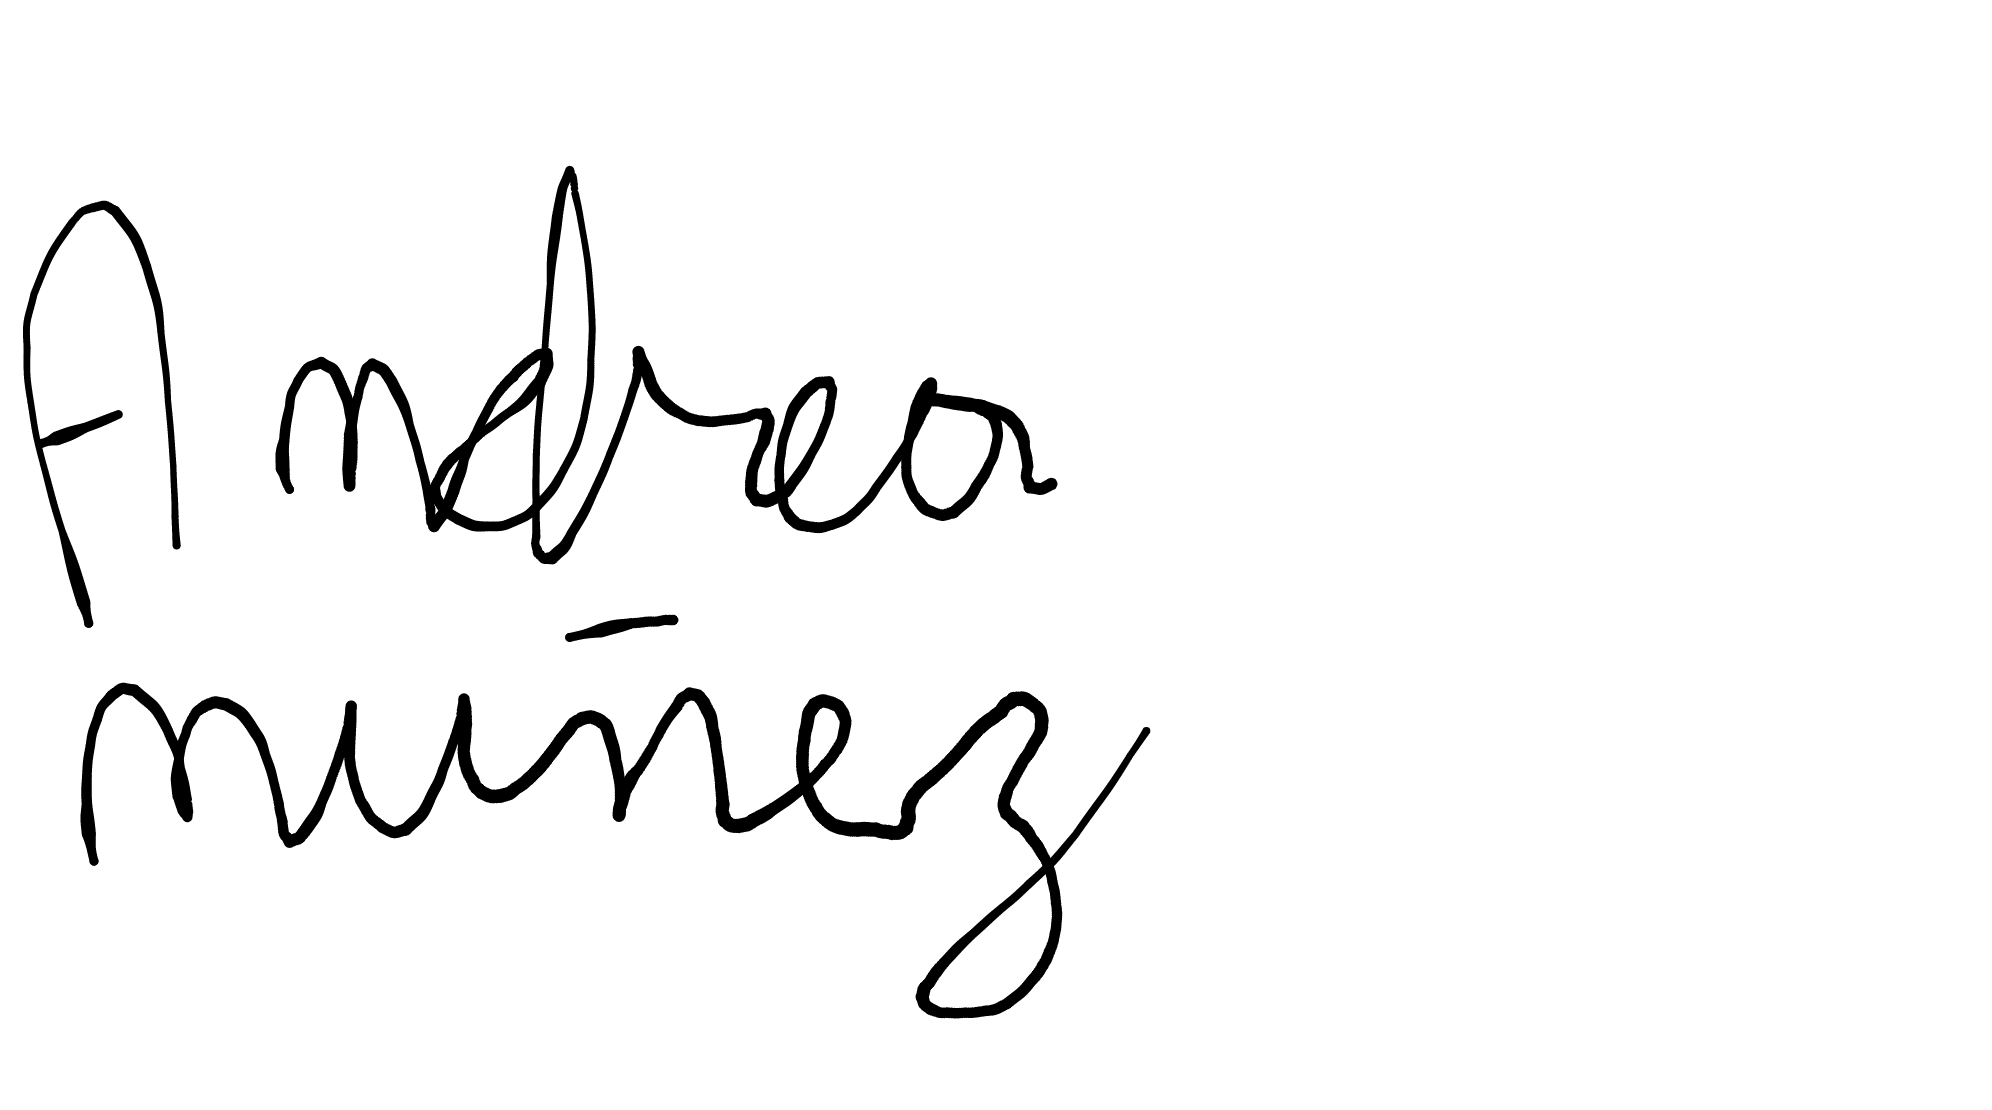 Andrea
nuñez